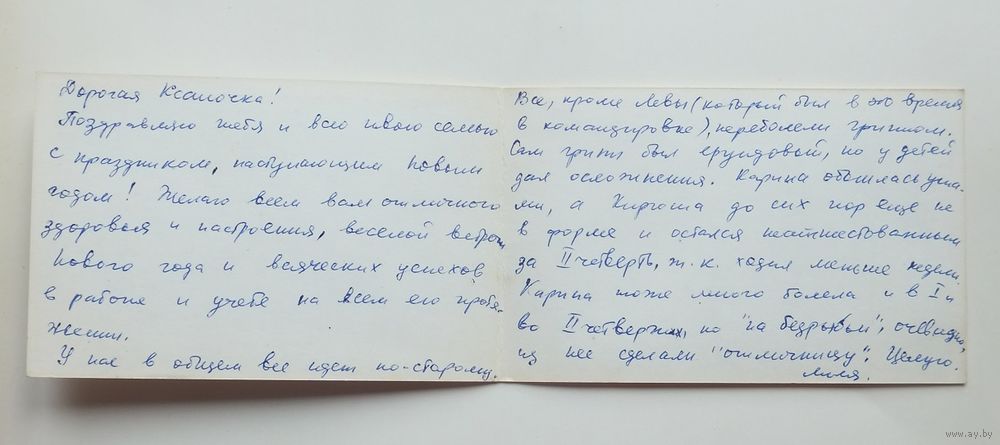 Дорогая Ксаночка!
Поздравляю тебя и всю твою семью
с праздником, наступающим Новым
годом! Желаю всем вам отличного
здоровья и настроения, веселой встречи
Нового года и всяческих успехов
в работе и учебе на всем его протя-
жении.
У нас в общем все идет по-старому.
Все, кроме Левы (который был в это время
в командировке), переболели гриппом.
Сам грипп был ерундовый, но у детей
дал осложнения. Карина обошлась уша-
ми, а Кирюша до сих пор еще не
в форме и остался неаттестованным
за II четверть, т.к. ходил меньше недели.
Карина тоже много болела и в I и
во II четвертях, но "на безрыбьи", очевидно,
из нее сделали "отличницу". Целую.
www.ay.by